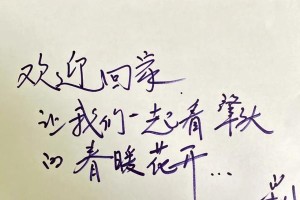 欢迎回家
让我们一起看肇大
的春暖花开...